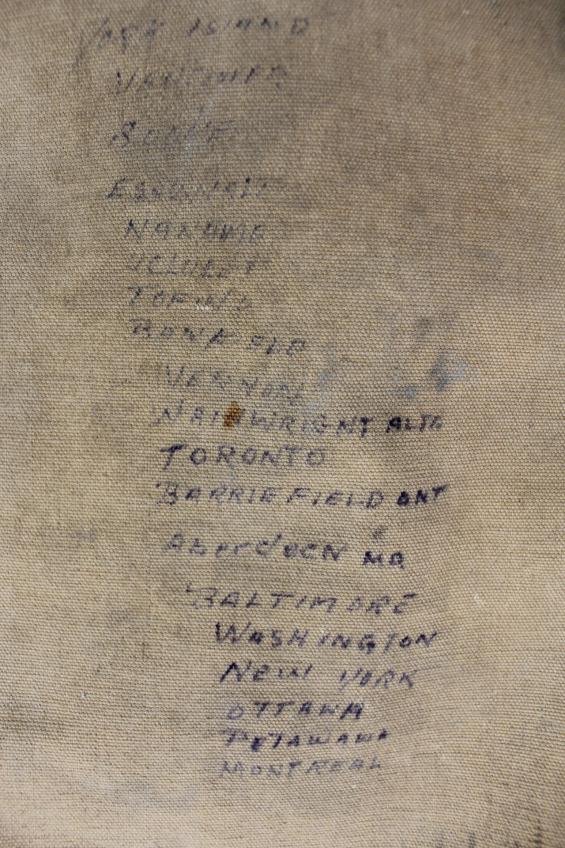 ISLAND
VANCOUVER
SOOKE
ESQUIMALT
NANAIMO
UCLUELET
TOFINO
VERNON
WAINWRIGHT ALTA
TORONTO
BARRIEFIELD ONT
ABERDEEN MD
BALTIMORE
WASHINGTON
NEW YORK
OTTAWA
PETAWAWA
MONTREAL